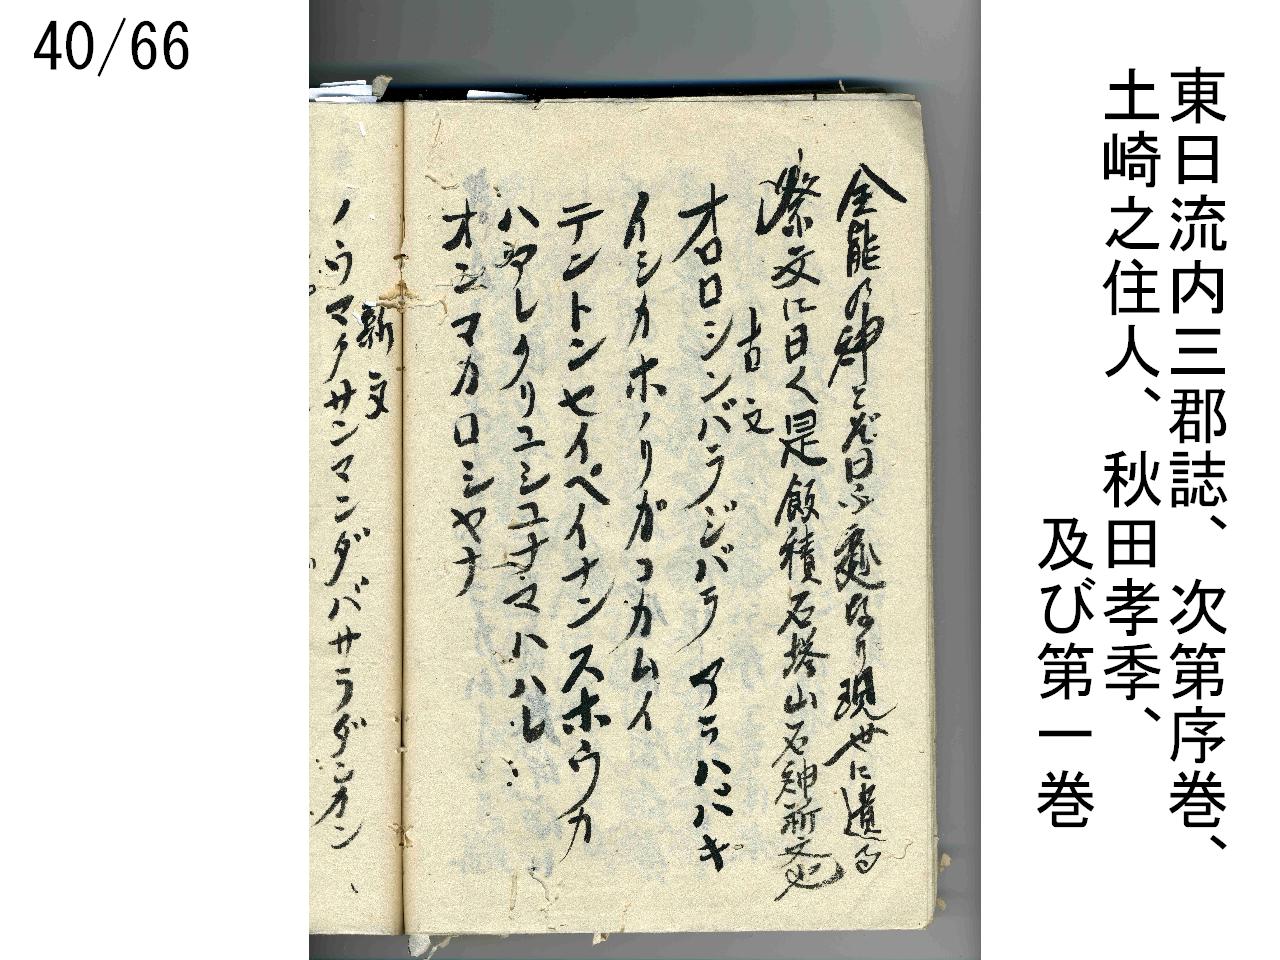 40/66
東日流内三郡誌、次第序巻、
土崎之住人、秋田孝季、
及び第一巻
全能の神とぞ曰ふ處なり現世に遺る
祭文に曰く是飯積石塔山石神祈文也
古文
オロロシンバラノジバラ アラハバキ
イシカホノリガコカムイ
テントンセイペイナンスホウカ
ハ卽レクリユシユナマハハレ
オンマカロシヤナ
新文
ノウマクサンマンダバサラダンカン